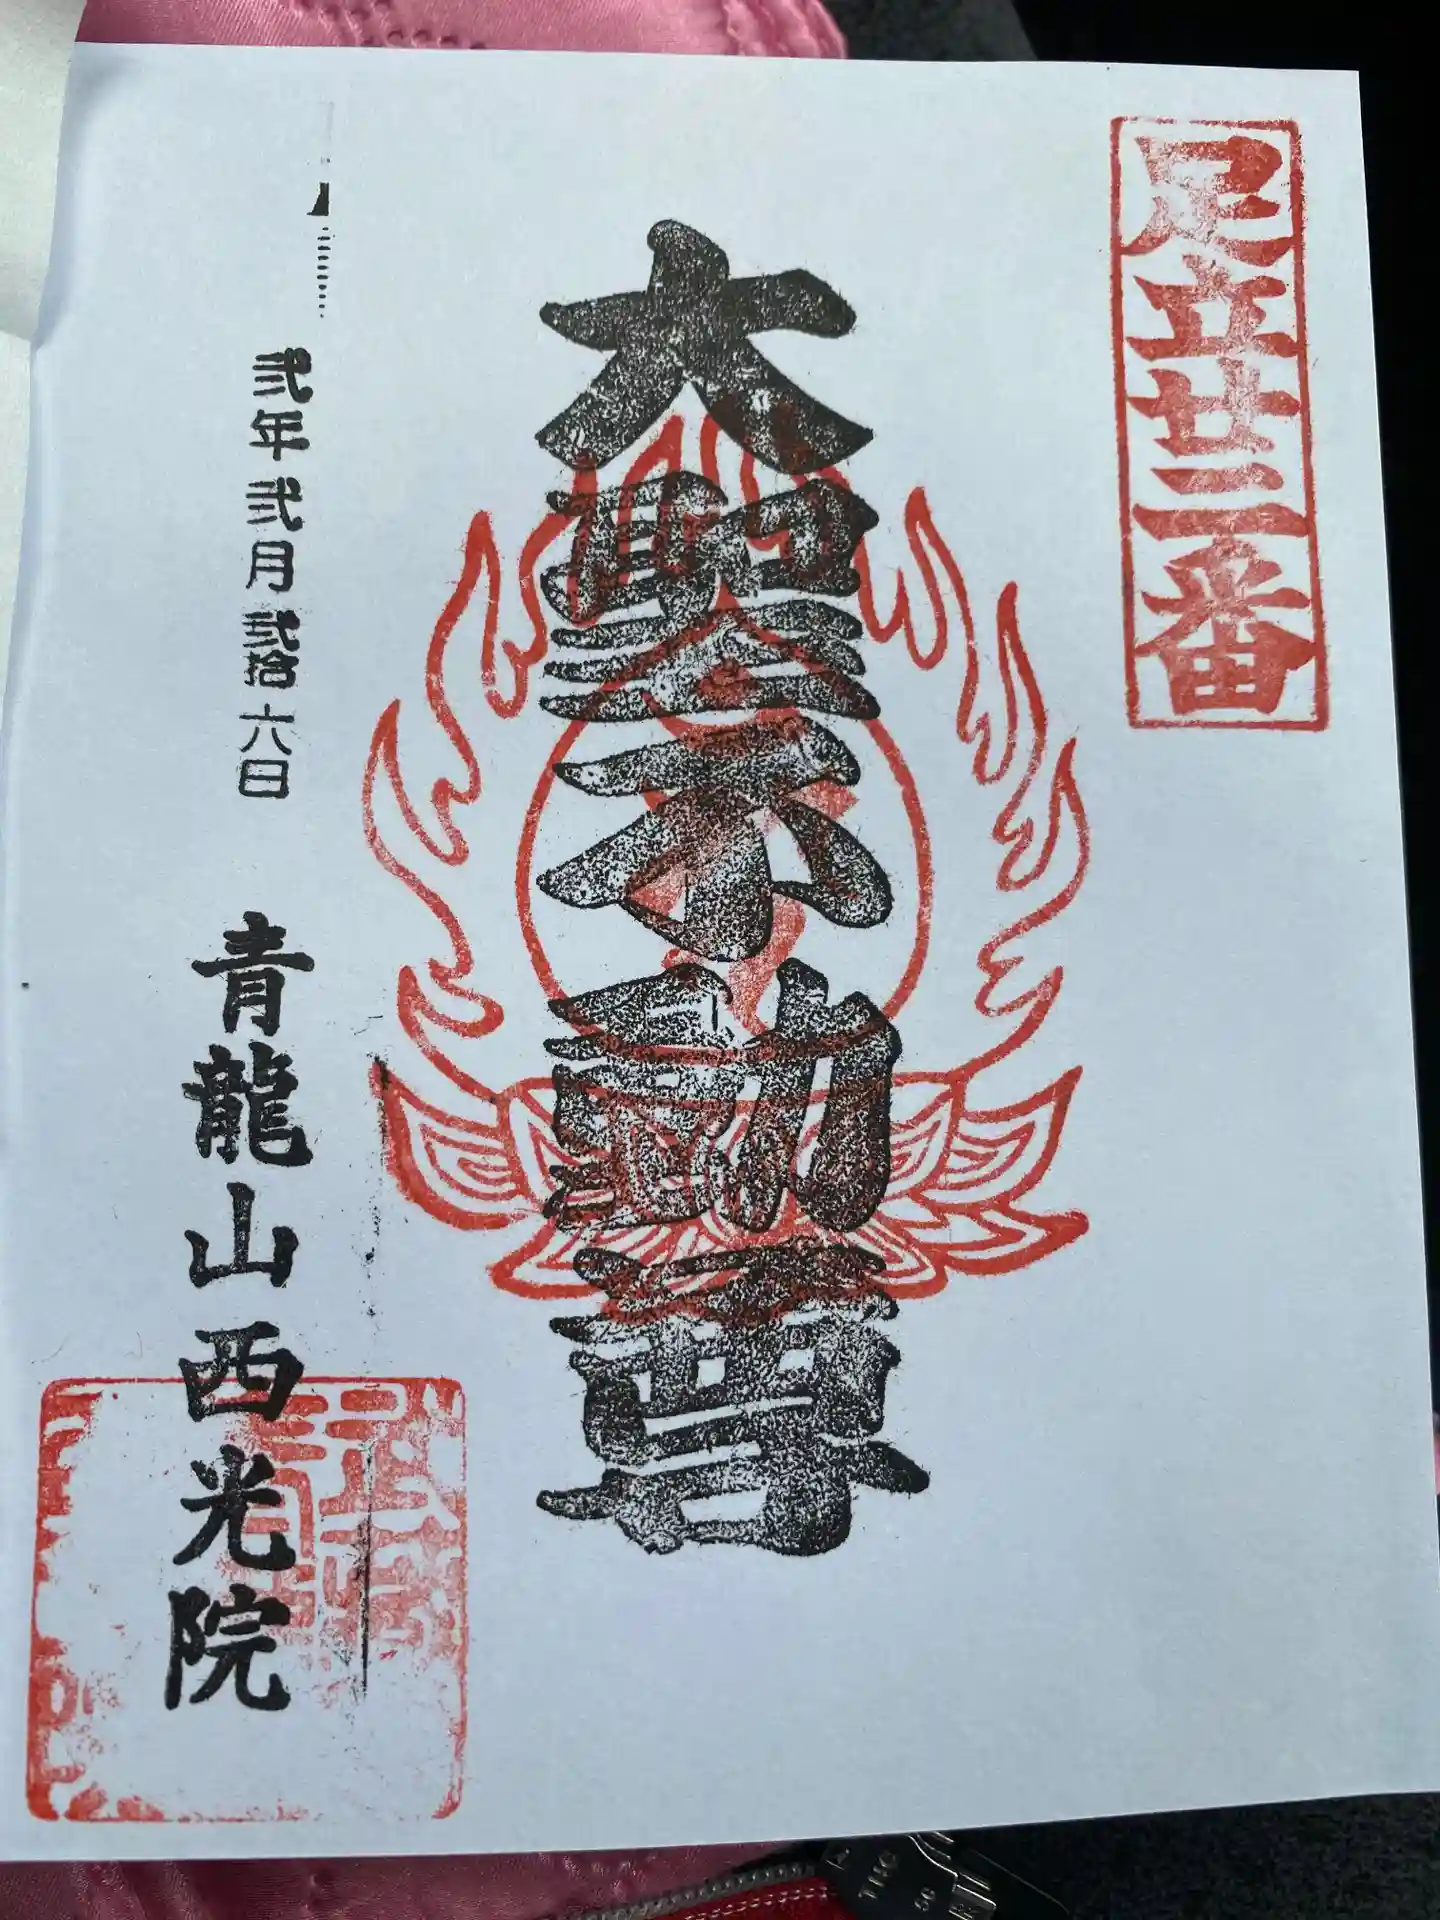 足立廿二番
大聖不動尊
弐年弐月弐拾六日
青龍山西光院